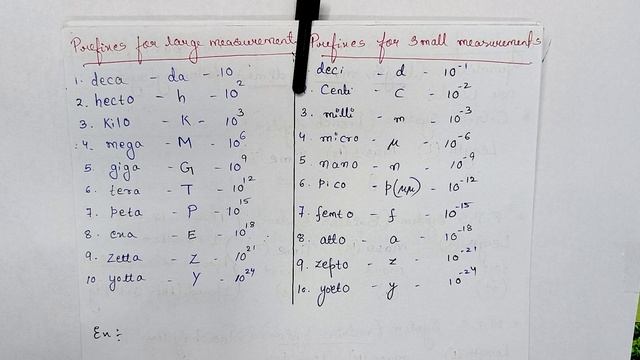 Prefixes for large measurement
1. deca - da - 10
2. hecto - h - 10²
3. Kilo - K - 10³
4. mega - M - 10⁶
5. giga - G - 10⁹
6. tera - T - 10¹²
7. peta - P - 10¹⁵
8. exa - E - 10¹⁸
9. Zetta - Z - 10²¹
10. yotta - Y - 10²⁴
En :-
Prefixes for small measurements
deci - d - 10⁻¹
Centi - C - 10⁻²
3. milli - m - 10⁻³
4. micro - μ - 10⁻⁶
5. nano - n - 10⁻⁹
6. pico - p(μμ) - 10⁻¹²
7. femto - f - 10⁻¹⁵
8. atto - a - 10⁻¹⁸
9. zepto - z - 10⁻²¹
10. yocto - y - 10⁻²⁴